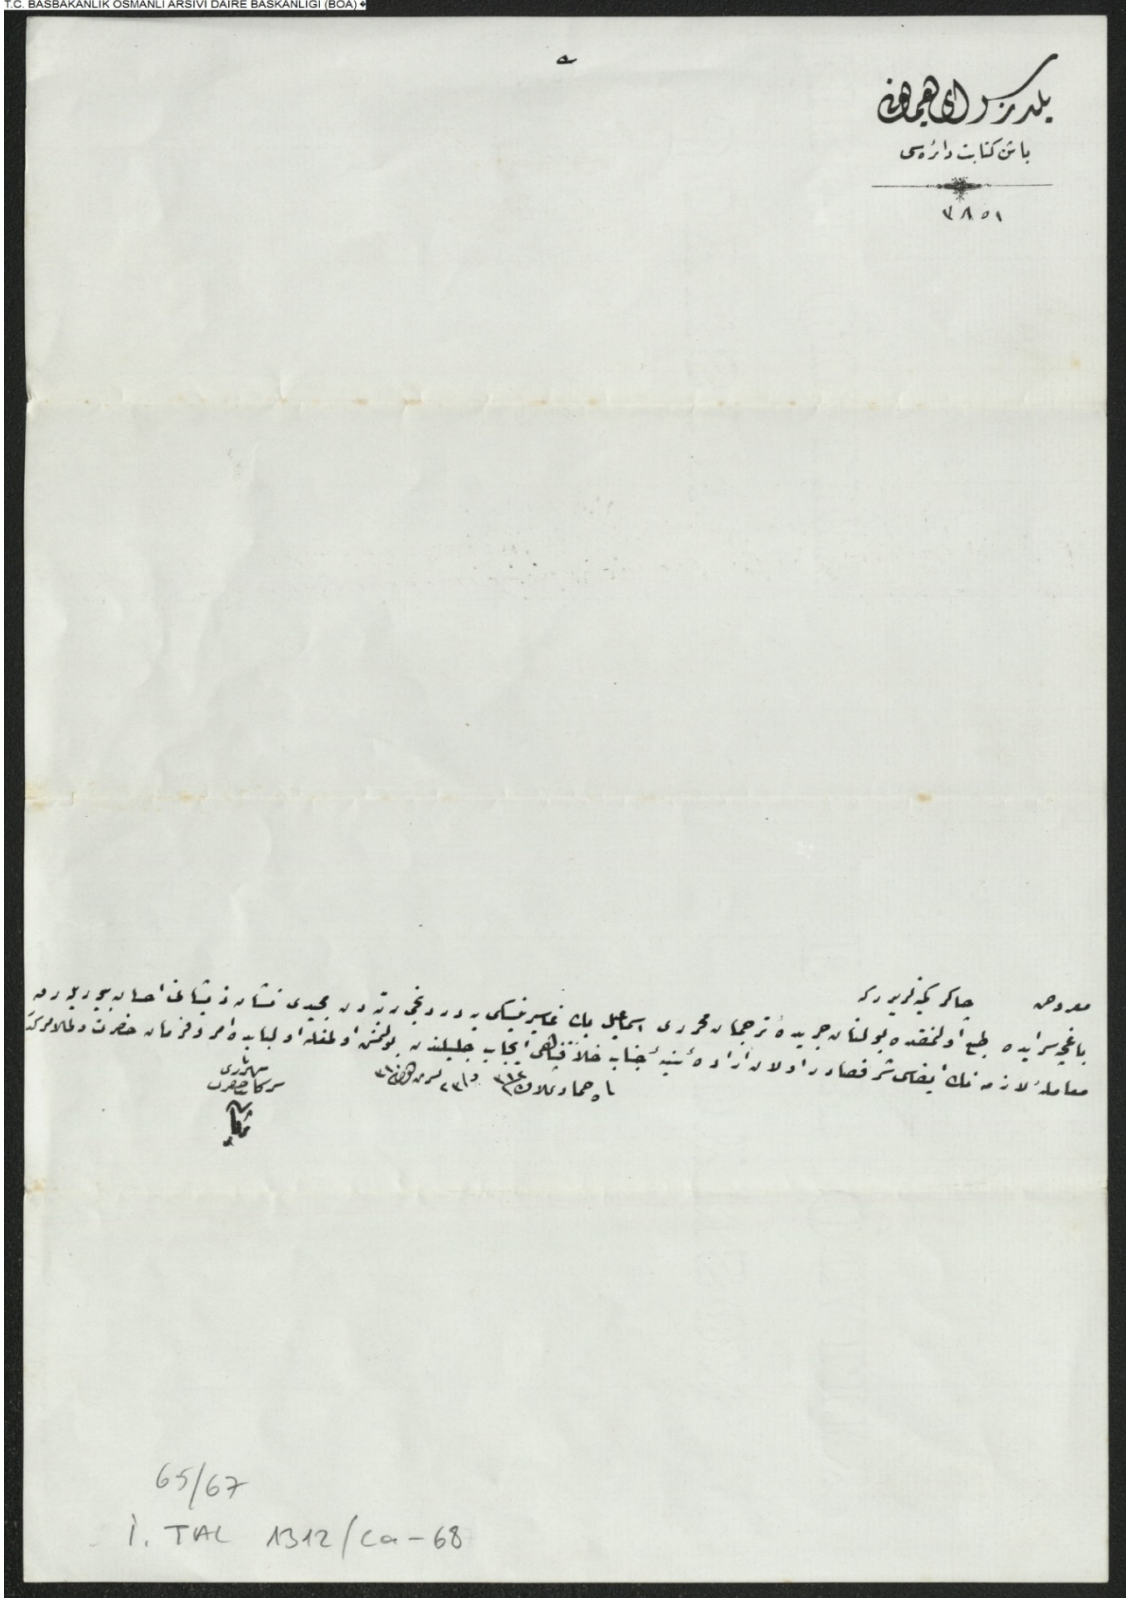 T.C. BASBAKANLIK OSMANLI ARSIVI DAIRE BASKANLIGI (BOA)
یلدیز سرای همایونی
باش کتابت دائره‌سی
٣٨٥١
معروض چاکر کمینه‌لریدر که
باغچه سرایده طبع اولنمقده بولنان جریدهٔ ترجمان محرری اسماعیل بك غاسپرنسکی یه دردنجی رتبه‌دن مجیدی نشان ذیشانی احسان بیوریلەرق
معاملهٔ لازمه‌نك ایفاسی شرفصادر اولان ارادهٔ سنیهٔ جناب خلافتپناهی ایجاب جلیلندن بولنمش اولمغله اولبابده امر و فرمان حضرت ولی الامرکدر
جماذی الاول ٣١٢ تشرین
سرکاتب حضرت شهریاری
65/67
İ. TAL 1312/Ca-68